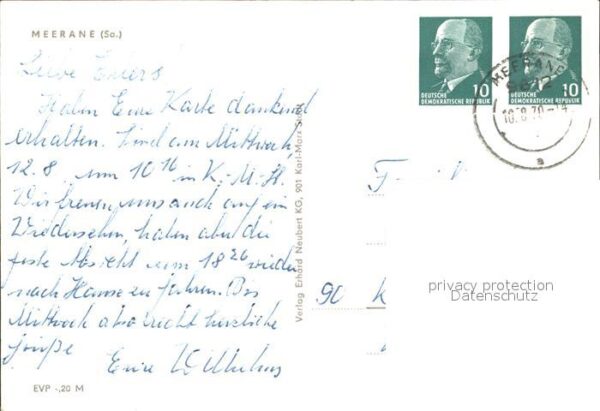 MEERANE (Sa.)
Liebe Ehlers
Haben Eure Karte dankend
erhalten. Sind am Mittwoch,
12.8. um 10 16 in K.-M.-St.
Wir freuen uns auch auf ein
Wiedersehn, haben aber die
feste Absicht um 18 26 wieder
nach Hause zu fahren. Bis
Mittwoch also recht herzliche
Grüße
Eure Wilhelms
EVP -,20 M
Verlag Erhard Neubert KG, 901 Karl-Marx-Stadt
10
DEUTSCHE
DEMOKRATISCHE REPUBLIK
10
DEUTSCHE
DEMOKRATISCHE REPUBLIK
MEERANE
10.8.70-14
a
F
90 K
privacy protection
Datenschutz